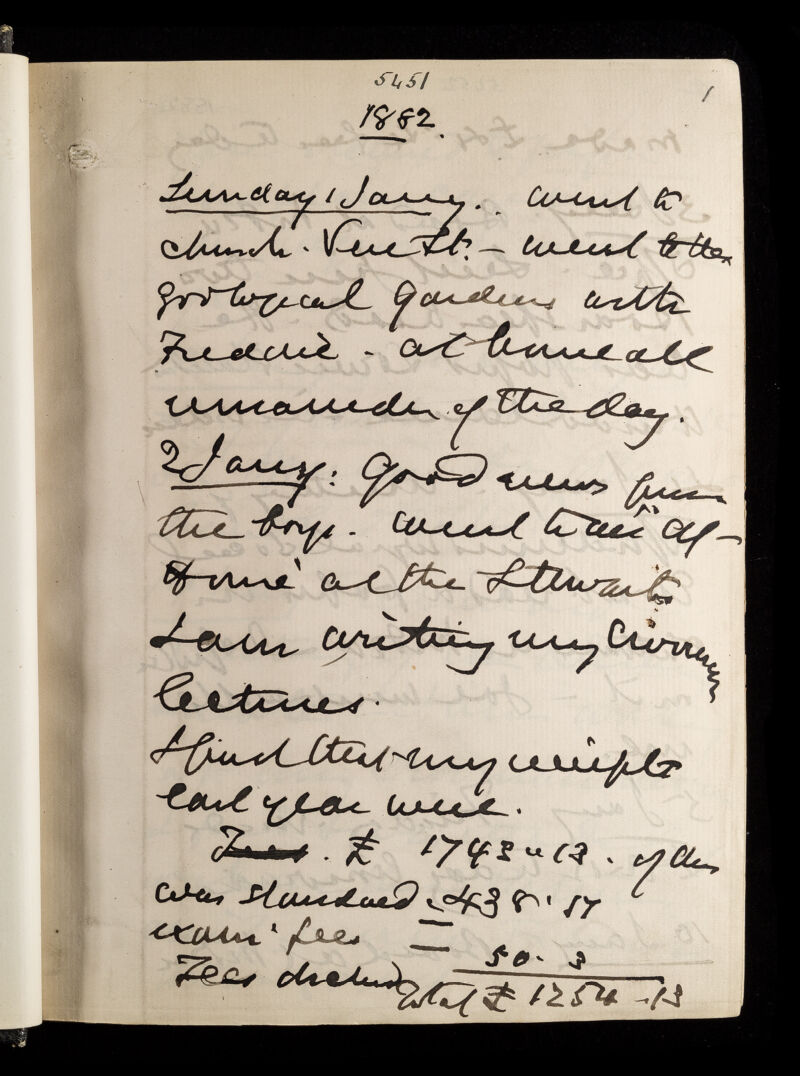 5451
1
1882.
Sunday 1 Jany. . went to
church. Vere St. – went to the
Zoological Gardens with
Freddie – at home all
remainder of the day.
2 Jany: Good news from
the boys. went to an "At –
Home" at the Stewarts
I am writing my Croonian
lectures.
I find that my receipts
last year were.
Fees. £ 1743 " 13 . of this
was Standard = 438 . 17
exam: fees =
50 . 3
Fees
Total £ 1254 . 13